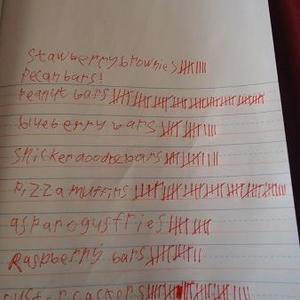 stawberry brownies
pecan bars!
peanut bars
blueberry bars
snickerdoodre bars
Pizza muffins
asparogus fries
Raspberry bars